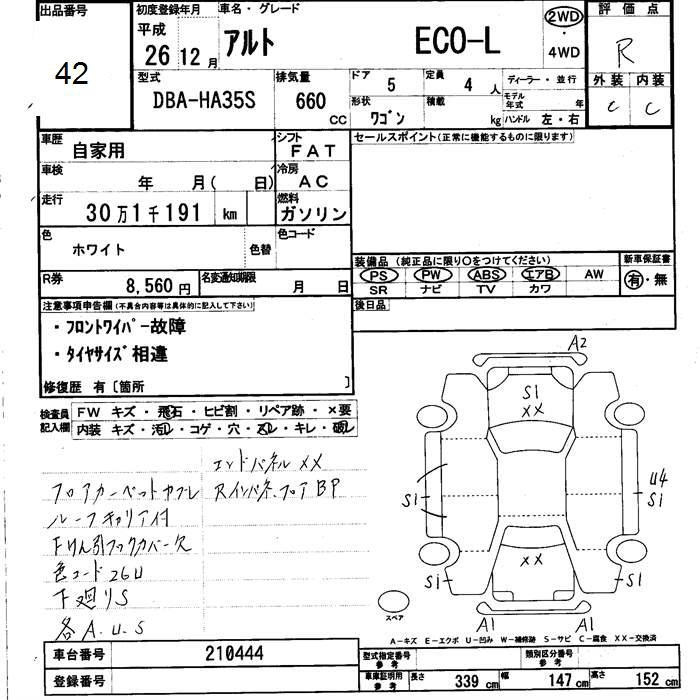 出品番号
42
初度登録年月
平成 26 12月
車名・グレード
アルト ECO-L
2WD
・
4WD
評価点
R
型式
DBA-HA35S
排気量
660 CC
ドア 5
定員 4 人
形状 ワゴン
積載 kg
ディーラー・並行
モデル年式 年
ハンドル 左・右
外装 内装
C C
車歴
自家用
シフト
FAT
セールスポイント(正常に機能するものに限ります)
車検
年 月( 日)
冷房
AC
走行
30万1千191 km
燃料
ガソリン
色
ホワイト
色替
色コード
R券
8,560円
名変通知期限
月 日
装備品(純正品に限り○をつけてください)
PS PW ABS エアB AW
SR ナビ TV カワ
新車保証書
有・無
後日品
注意事項申告欄(不具合内容等は具体的に記入して下さい)
・フロントワイパー故障
・タイヤサイズ相違
修復歴 有〔箇所 〕
検査員記入欄
FW キズ・飛石・ヒビ割・リペア跡・×要
内装 キズ・汚レ・コゲ・穴・スレ・キレ・破レ
エンドパネルXX
フロアカーペットカブレ Rインパネ.フロアBP
ルーフキャリア付
下けん引フックカバー欠
色コード26U
下廻りS
各A.U.S
A2
S1
XX
S1
U4
S1
XX
S1
S1
A1
A1
スペア
A-キズ E-エクボ U-凹み W-補修跡 S-サビ C-腐食 XX-交換済
車台番号
210444
登録番号
型式指定番号 参考
類別区分番号 参考
車庫証明用 参考
長さ 339 cm
幅 147 cm
高さ 152 cm